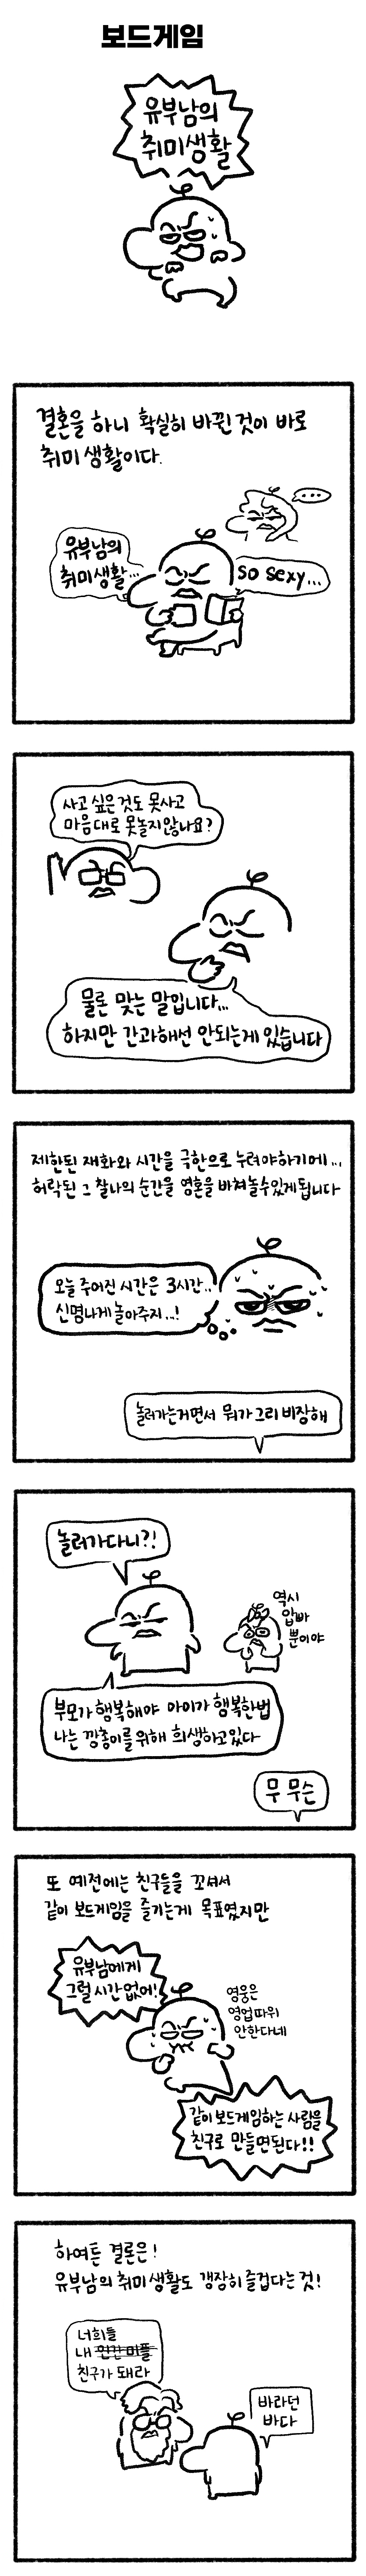 보드게임
유부남의
취미생활
결혼을 하니 확실히 바뀐 것이 바로
취미 생활이다.
...
유부남의
취미생활...
so sexy...
사고 싶은것도 못사고
마음대로 못놀지않나요?
물론 맞는 말입니다...
하지만 간과해선 안되는게 있습니다
제한된 재화와 시간을 극한으로 누려야하기에...
허락된 그 찰나의 순간을 영혼을 바쳐놀수있게됩니다
오늘 주어진 시간은 3시간..
신명나게 놀아주지...!
놀러가는거면서 뭐가 그리 비장해
놀러가다니?!
역시
압빠
뿐이야
부모가 행복해야 아이가 행복한법
나는 깡총이를 위해 희생하고있다
무 무슨
또 예전에는 친구들을 꼬셔서
같이 보드게임을 즐기는게 목표였지만
유부남에게
그럴 시간 없어!
영웅은
영업따위
안한다네
같이 보드게임하는 사람을
친구로 만들면된다!!
하여튼 결론은!
유부남의 취미생활도 굉장히 즐겁다는 것!
너희들
내 인간 미플
친구가 돼라
바라던
바다